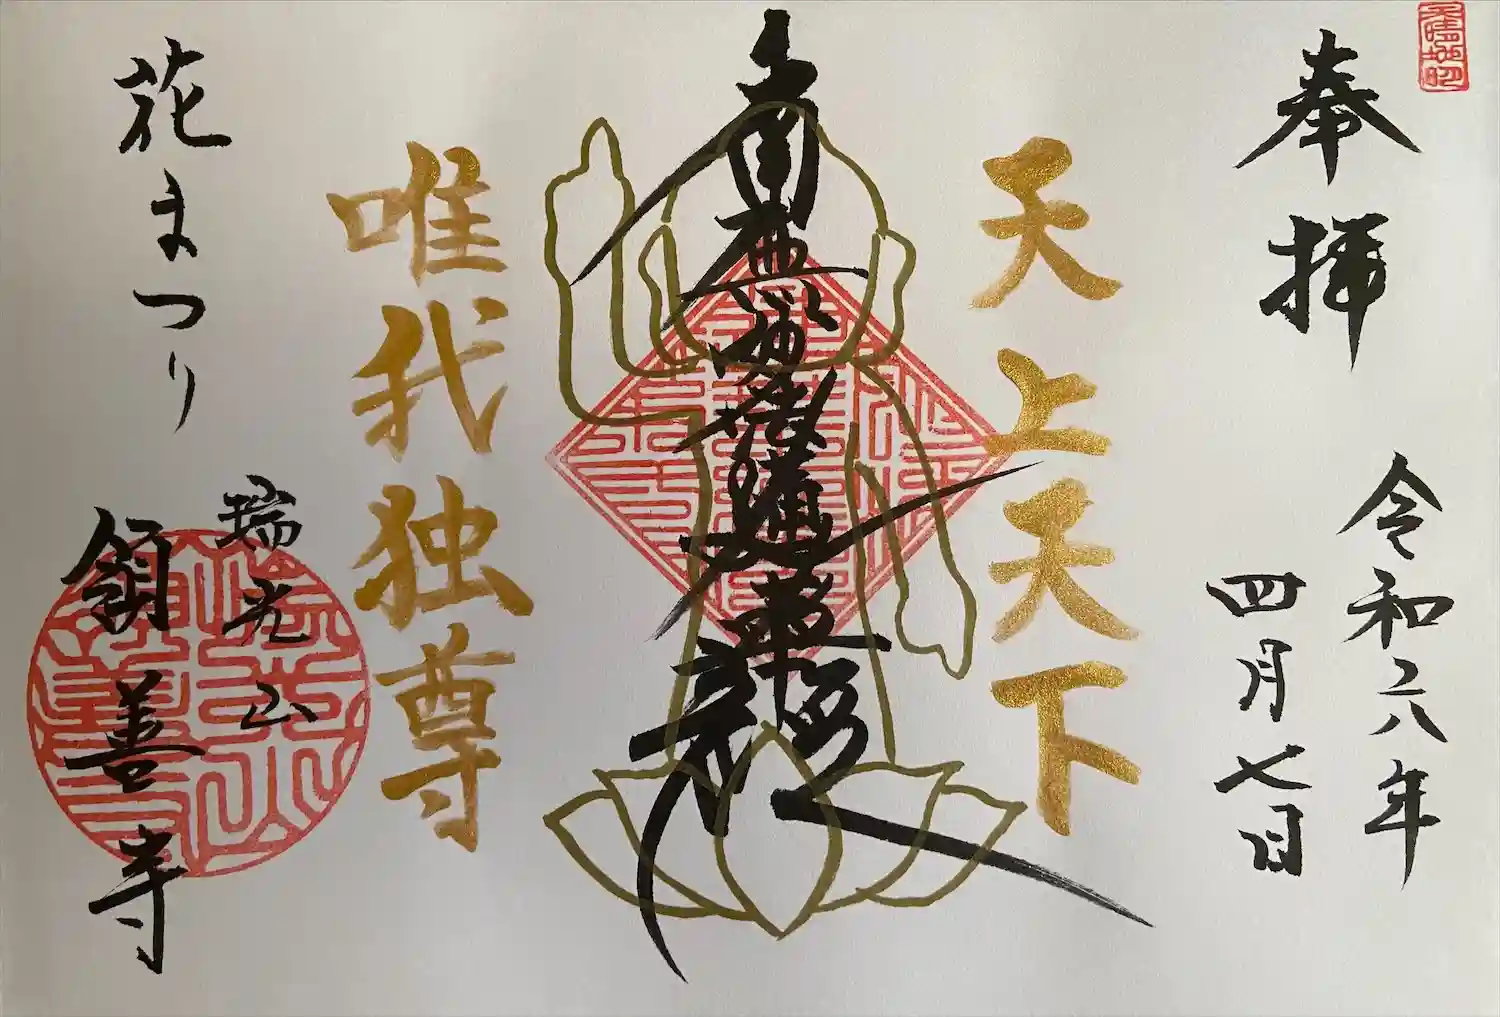 奉拝
令和六年
四月七日
天上天下
南無妙法蓮華経
唯我独尊
花まつり
瑞光山
領善寺